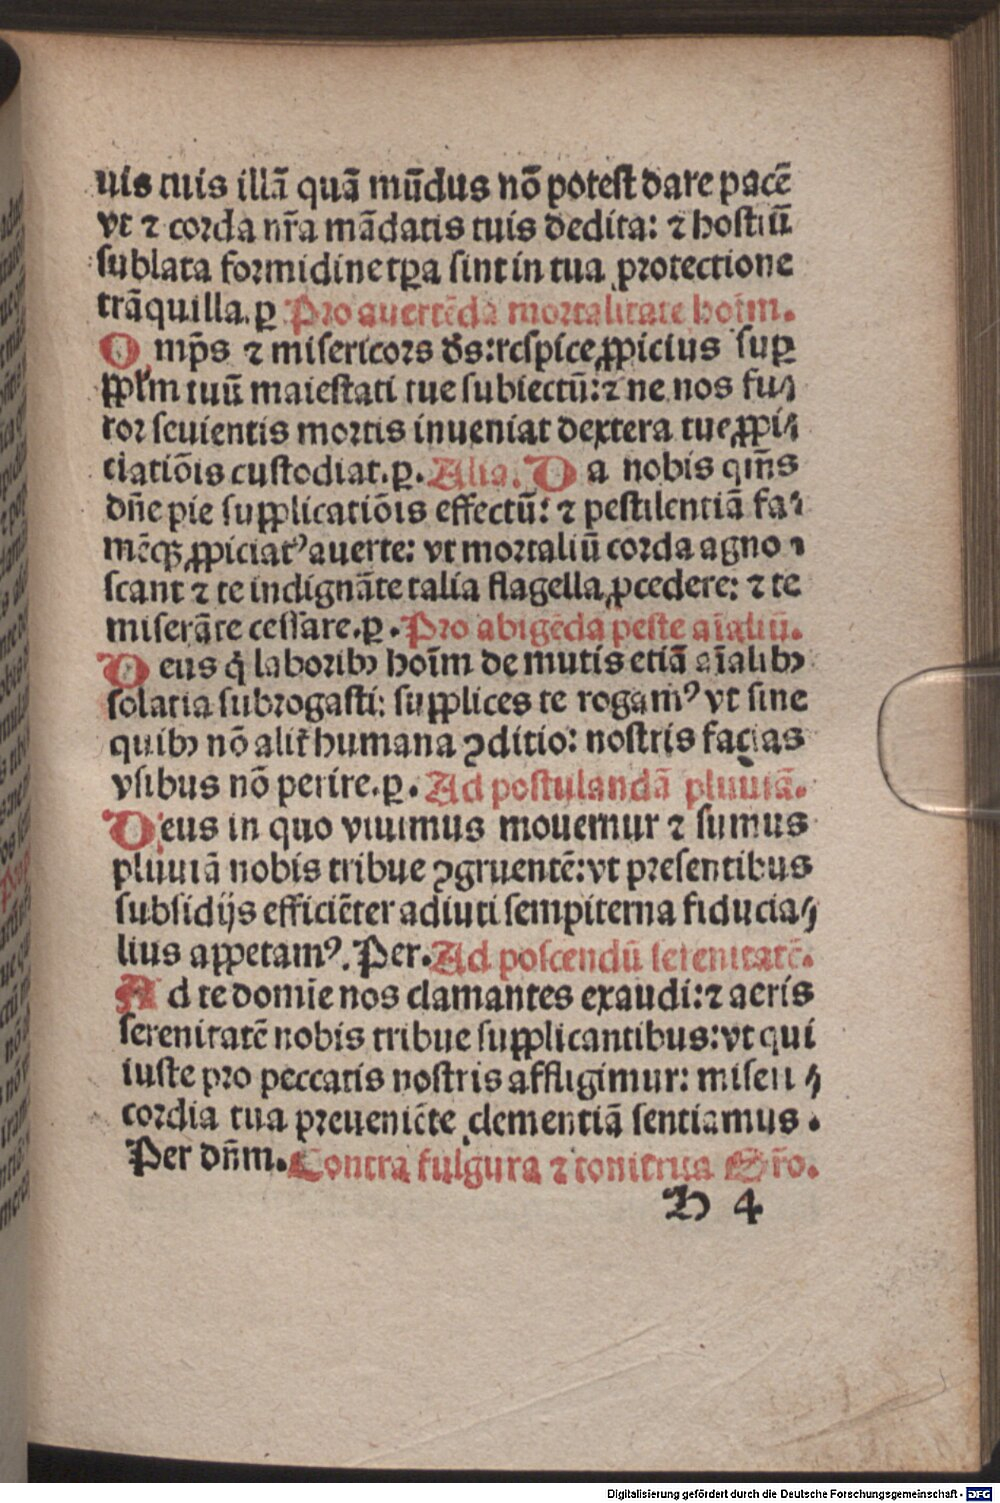 uis tuis illā quā mūdus nō potest dare pacē
vt ⁊ corda nr̄a mādatis tuis dedita: ⁊ hostiū
sublata formidine tꝑa sint in tua ꝓtectione
trāquilla. ꝑ Pro auertēda mortalitate hoīm.
Omp̄s ⁊ misericors d̄s: respice ꝓpicius suꝑ
ppl̄m tuū maiestati tue subiectū: ⁊ ne nos fu⸗
ror seuientis mortis inueniat dextera tue ꝓpi⸗
ciatiōis custodiat. ꝑ. Alia. Da nobis qm̄s
dn̄e pie supplicatiōis effectū: ⁊ pestilentiā fa⸗
mēqꝫ ꝓpiciatꝰ auerte: vt mortaliū corda agno⸗
scant ⁊ te indignāte talia flagella ꝓcedere: ⁊ te
miserāte cessare. ꝑ. Pro abigēda peste aīaliū.
Deus q̇ laboribꝫ hoīm de mutis etiā aīalibꝫ
solatia subrogasti: supplices te rogamꝰ vt sine
quibꝫ nō alit̄ humana ꝯditio: nostris facias
vsibus nō perire. ꝑ. Ad postulandā pluuiā.
Deus in quo viuimus mouemur ⁊ sumus
pluuiā nobis tribue ꝯgruentē: vt presentibus
subsidijs efficiēter adiuti sempiterna fiducia⸗
lius appetamꝰ. Per. Ad poscendū serenitatē.
Ad te domīe nos clamantes exaudi: ⁊ aeris
serenitatē nobis tribue supplicantibus: vt qui
iuste pro peccatis nostris affligimur: miseri⸗
cordia tua preueniēte clementiā sentiamus.
Per dn̄m. Contra fulgura ⁊ tonitrua Or̄o.
H 4
Digitalisierung gefördert durch die Deutsche Forschungsgemeinschaft - DFG